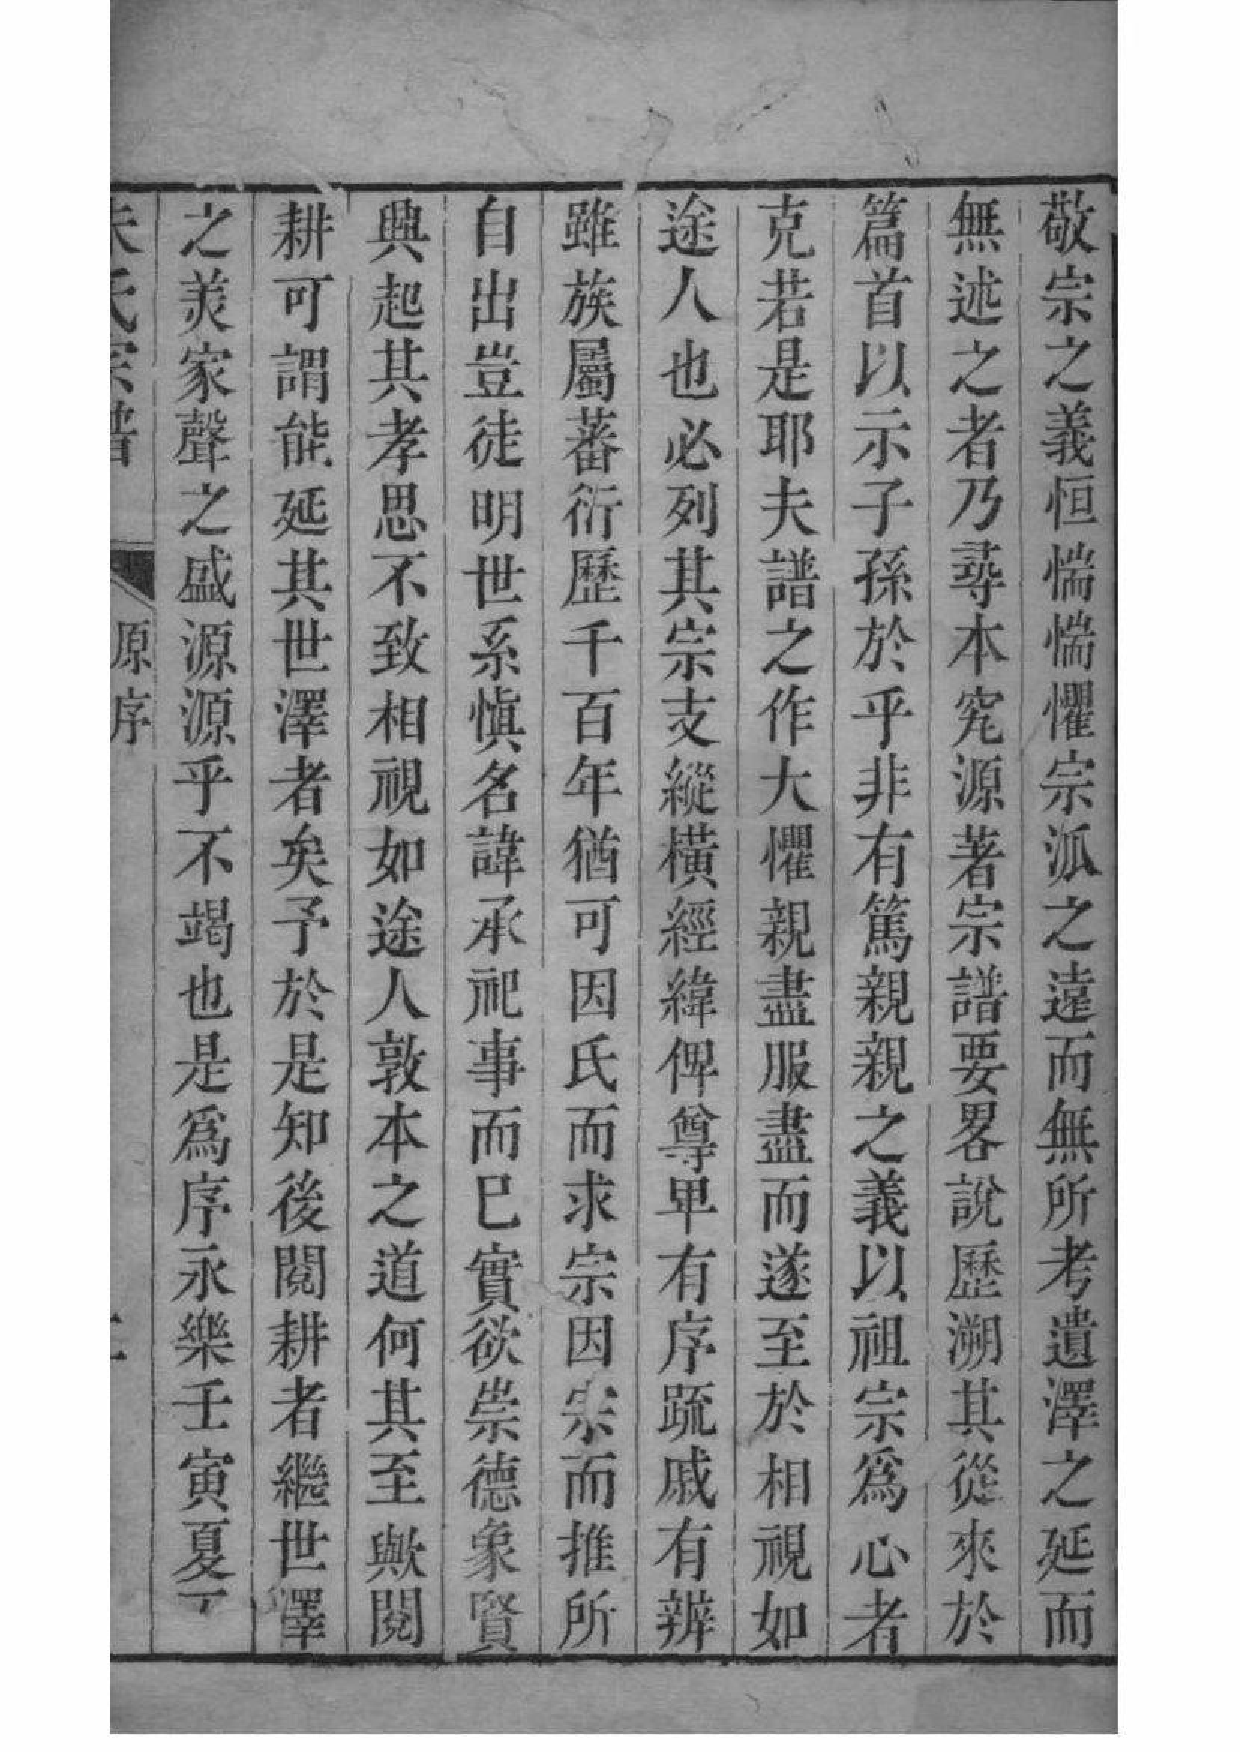 敬宗之義恒惴惴懼宗泒之遠而無所考遺澤之延而
無述之者乃尋本究源著宗譜要畧說歷溯其從來於
篇首以示子孫於乎非有篤親親之義以祖宗爲心者
克若是耶夫譜之作大懼親盡服盡而遂至於相視如
途人也必列其宗支縱橫經緯俾尊畢有序䟽戚有辨
雖族屬蕃衍歷千百年猶可因氏而求宗因宗而推所
自出豈徒明世系愼名諱承祀事而巳實欲崇德象賢
興起其孝思不致相視如途人敦本之道何其至歟閱
耕可謂能延其世澤者矣予於是知後閱耕者繼世澤
之羙家聲之盛源源乎不竭也是爲序永樂壬寅夏
朱氏宗譜 原序 二